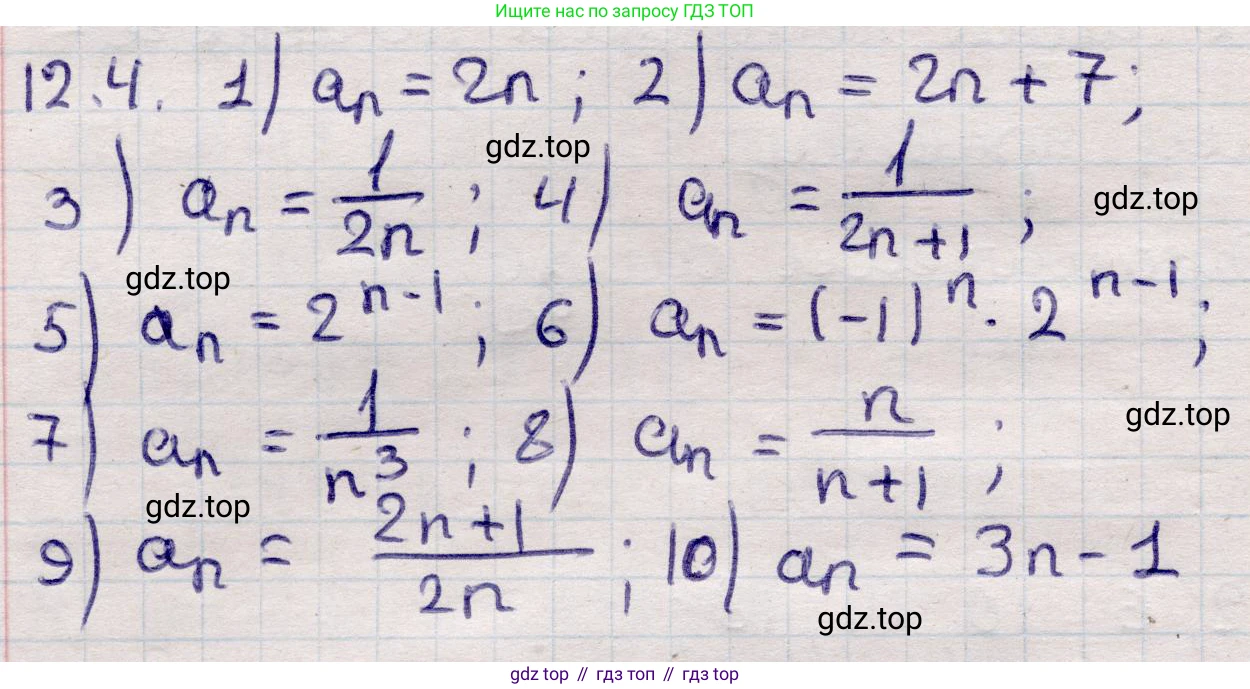 Ищите нас по запросу ГДЗ ТОП
12.4. 1) aₙ = 2n ; 2) aₙ = 2n + 7;
gdz.top
3) aₙ = 1/2n ; 4) aₙ = 1/2n+1 ;
gdz.top
gdz.top
5) aₙ = 2ⁿ⁻¹ ; 6) aₙ = (-1)ⁿ · 2ⁿ⁻¹ ;
7) aₙ = 1/n³ ; 8) aₙ = n/n+1 ;
gdz.top
gdz.top
9) aₙ = 2n+1/2n ; 10) aₙ = 3n - 1
gdz.top
gdz top // гдз топ // gdz top